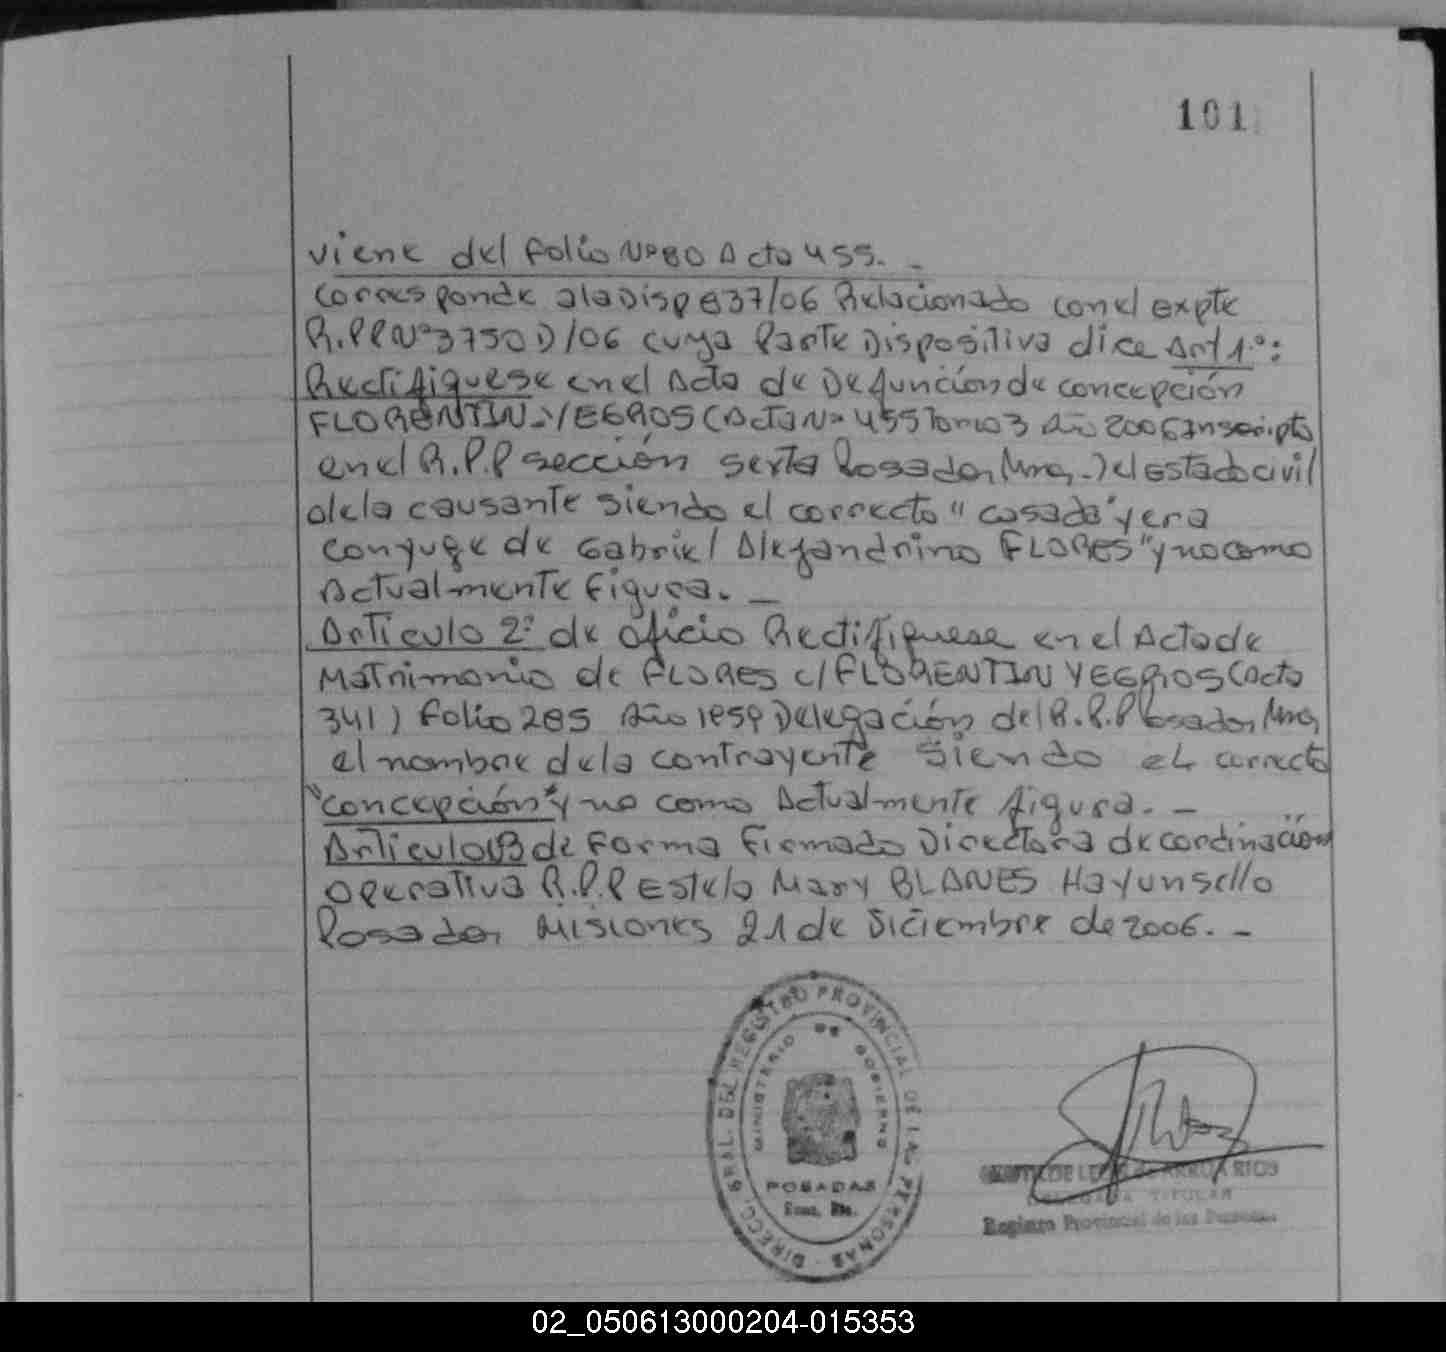 101
viene del folio Nº 80 Acta 455. _
Corresponde ala Disp 837/06 Relacionado con el expte
R.PP Nº 3750 D/06 cuya Parte Dispositiva dice Art 1.º:
Rectifiquese en el Acta de Defunción de concepción
FLORENTIN YEGROS (Acta Nº 455 Tomo 3 Año 2006 Inscripta
en el R.P.P sección sexta Posadas, Mnes.) el estado civil
de la causante siendo el correcto "casada" y era
conyuge de Gabriel Alejandrino FLORES" y no como
Actualmente figura. _
Articulo 2º de oficio Rectifiquese en el Acta de
Matrimonio de FLORES c/ FLORENTIN YEGROS (Acta
341) folio 285 Año 1959 Delegación del R.P.P Posadas, Mnes,
el nombre de la contrayente siendo el correcto
"concepción" y no como Actualmente figura. _
Articulo 3 de forma Firmado Directora de cordinación
operativa R.P.P Estela Mary BLANES Hay un sello
Posadas, Misiones 21 de Diciembre de 2006. _
DIRECC. GRAL. DEL REGISTRO PROVINCIAL DE LAS PERSONAS
MINISTERIO DE GOBIERNO
POSADAS
TITULAR
Registro Provincial de las Personas
02_050613000204-015353